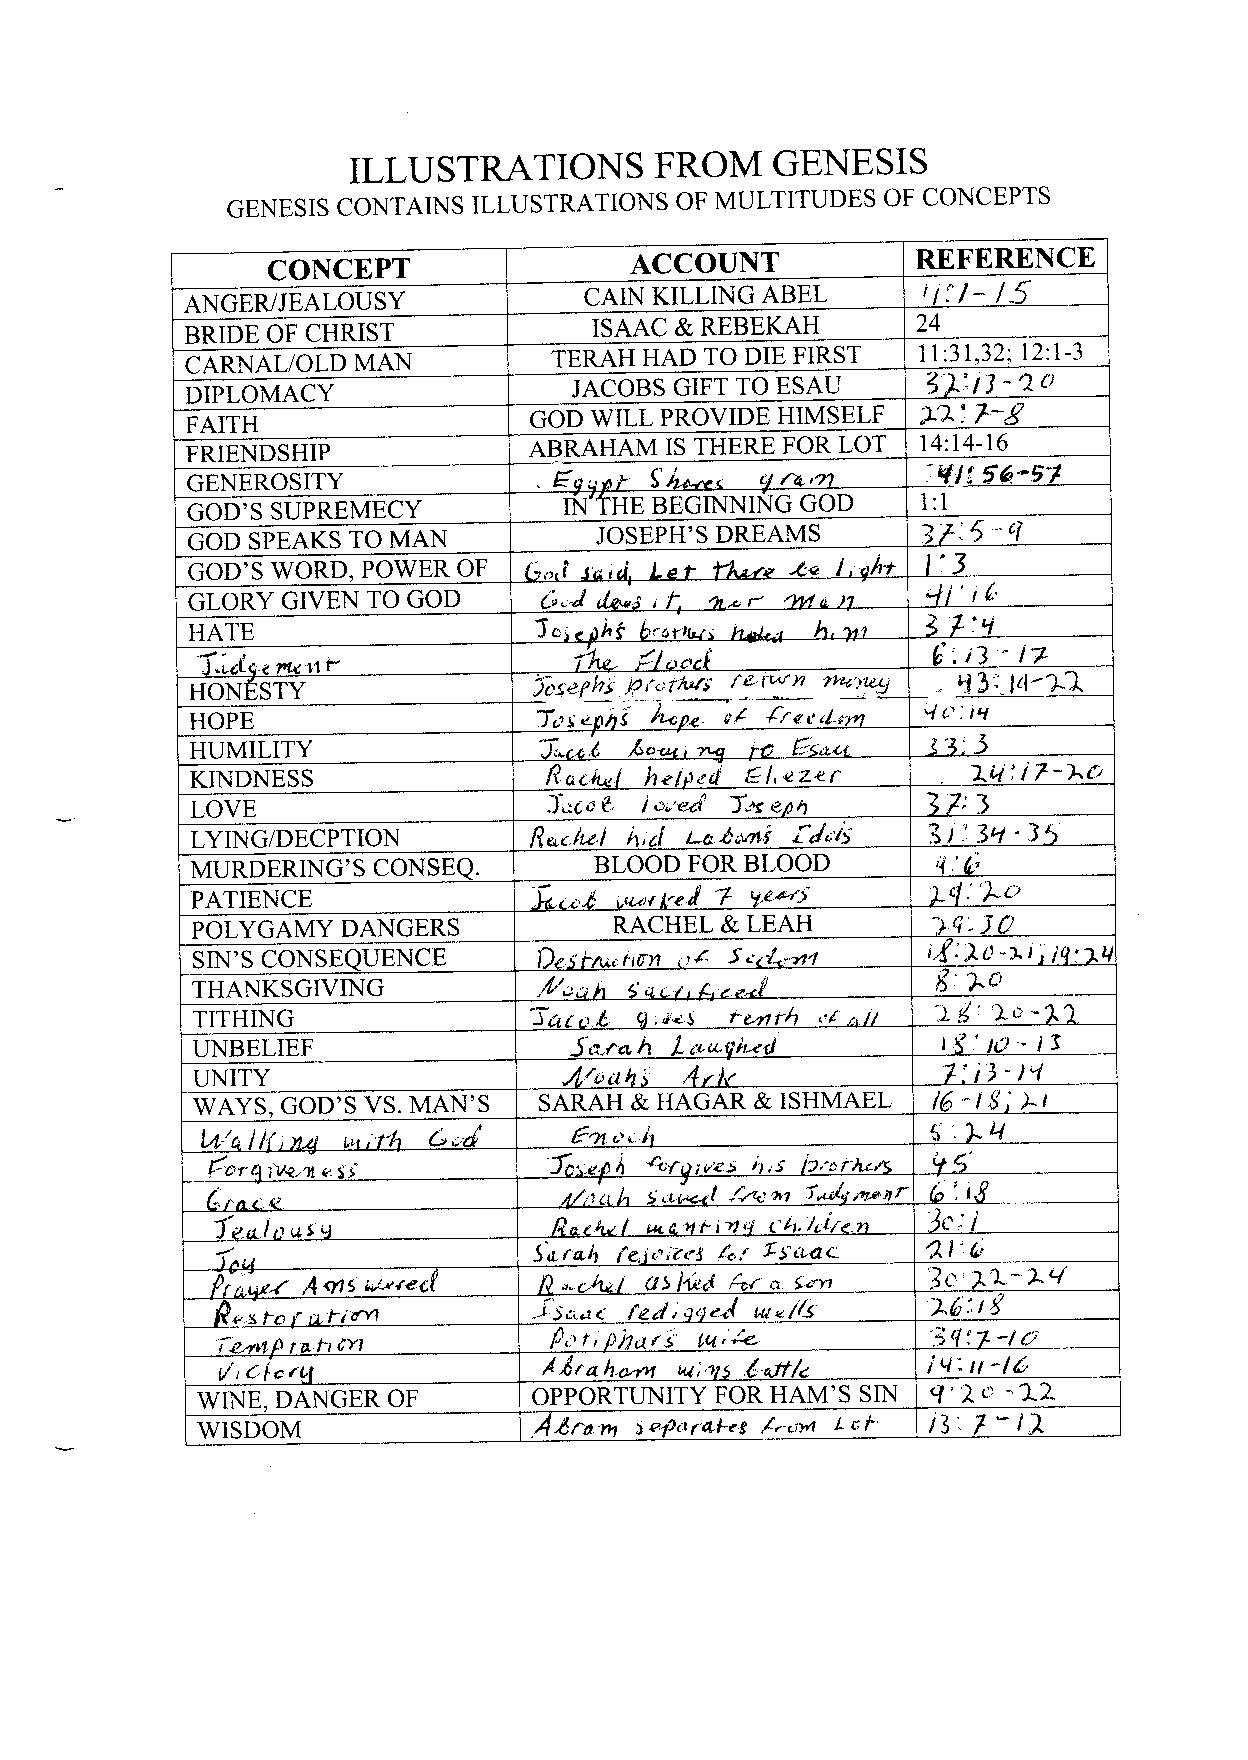 ILLUSTRATIONS FROM GENESIS
GENESIS CONTAINS ILLUSTRATIONS OF MULTITUDES OF CONCEPTS
CONCEPT ACCOUNT REFERENCE
ANGER/JEALOUSY CAIN KILLING ABEL 4:1-15
BRIDE OF CHRIST ISAAC & REBEKAH 24
CARNAL/OLD MAN TERAH HAD TO DIE FIRST 11:31,32; 12:1-3
DIPLOMACY JACOBS GIFT TO ESAU 32:13-20
FAITH GOD WILL PROVIDE HIMSELF 22:7-8
FRIENDSHIP ABRAHAM IS THERE FOR LOT 14:14-16
GENEROSITY Egypt Shares grain 41:56-57
GOD'S SUPREMECY IN THE BEGINNING GOD 1:1
GOD SPEAKS TO MAN JOSEPH'S DREAMS 37:5-9
GOD'S WORD, POWER OF God said, Let there be light 1:3
GLORY GIVEN TO GOD God does it, not man 41:16
HATE Joseph's brothers hated him 37:4
Judgement The Flood 6:13-17
HONESTY Josephs brothers return money 43:14-22
HOPE Joseph's hope of freedom 40:14
HUMILITY Jacob bowing to Esau 33:3
KINDNESS Rachel helped Eliezer 24:17-20
LOVE Jacob loved Joseph 37:3
LYING/DECPTION Rachel hid Labans Idols 31:34-35
MURDERING'S CONSEQ. BLOOD FOR BLOOD 9:6
PATIENCE Jacob worked 7 years 29:20
POLYGAMY DANGERS RACHEL & LEAH 29:30
SIN'S CONSEQUENCE Destruction of Sodom 18:20-21; 19:24
THANKSGIVING Noah sacrificed 8:20
TITHING Jacob gives tenth of all 28:20-22
UNBELIEF Sarah Laughed 18:10-13
UNITY Noahs Ark 7:13-14
WAYS, GOD'S VS. MAN'S SARAH & HAGAR & ISHMAEL 16-18; 21
Walking with God Enoch 5:24
Forgiveness Joseph forgives his brothers 45
Grace Noah saved from Judgment 6:18
Jealousy Rachel wanting children 30:1
Joy Sarah rejoices for Isaac 21:6
Prayer Answered Rachel asked for a son 30:22-24
Restoration Isaac redigged wells 26:18
Temptation Potiphar's wife 39:7-10
Victory Abraham wins battle 14:11-16
WINE, DANGER OF OPPORTUNITY FOR HAM'S SIN 9:20-22
WISDOM Abram separates from Lot 13:7-12